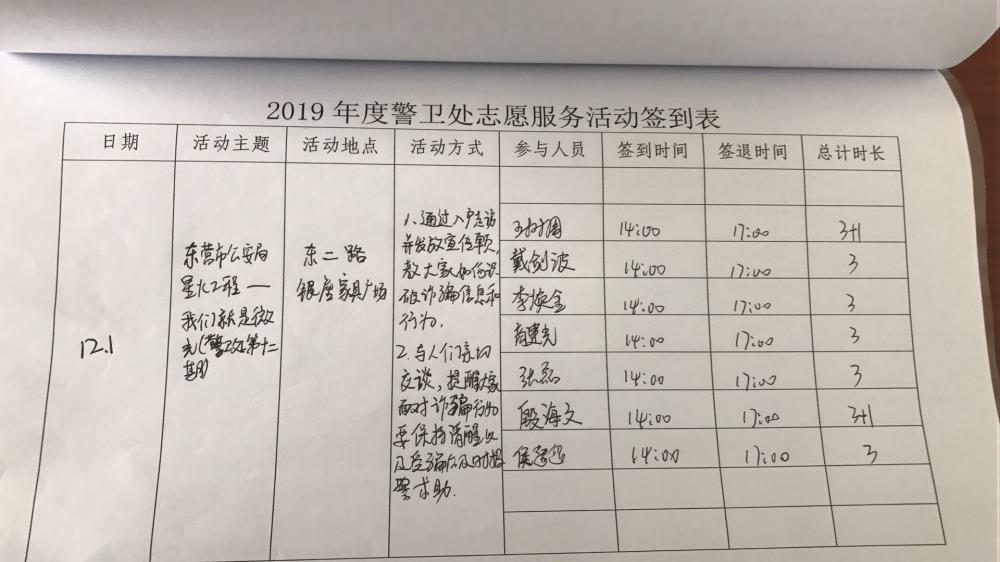 2019 年度警卫处志愿服务活动签到表
日期 活动主题 活动地点 活动方式 参与人员 签到时间 签退时间 总计时长
12.1
东营市公安局
星火工程——
我们就是微
光(警卫处第十二
期)
东二路
银座家具广场
1、通过入户走访
并发放宣传单,
教大家如何识
破诈骗信息和
行为.
2.与人们亲切
交谈,提醒大家
面对诈骗行为
要保持清醒以
及受骗后及时报
警求助.
14:00 17:00 3+1
戴剑波 14:00 17:00 3
李焕金 14:00 17:00 3
商建光 14:00 17:00 3
张磊 14:00 17:00 3
殷海文 14:00 17:00 3+1
14:00 17:00 3